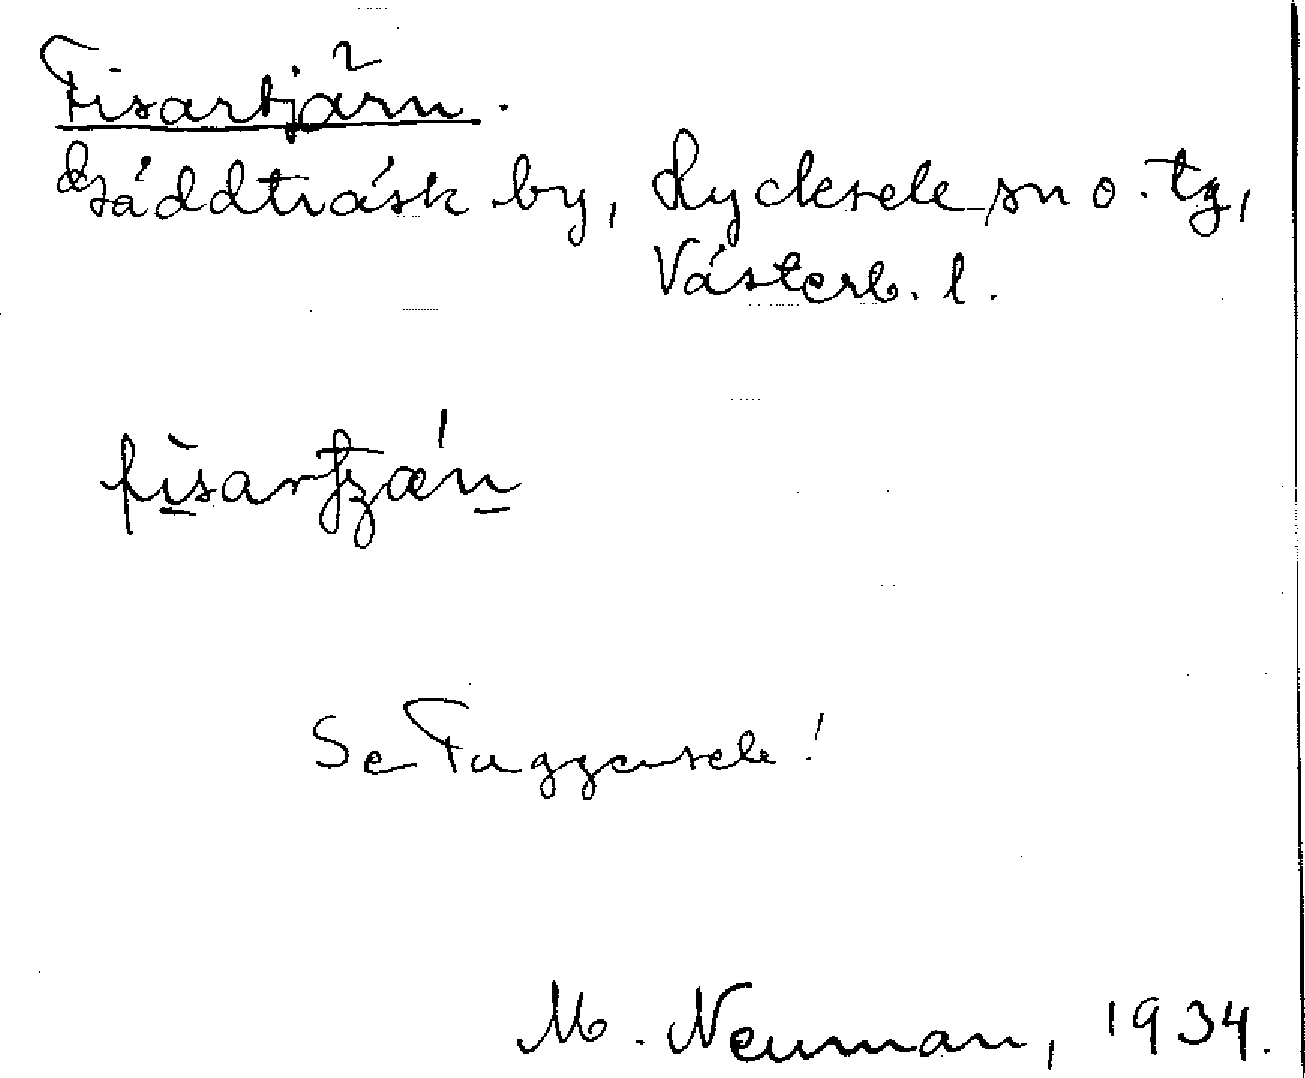 Fisartjärn.
Gäddträsk by, Lycksele sn o. tg,
Västerb. l.
Se Fuggensele!
M. Neuman, 1934.